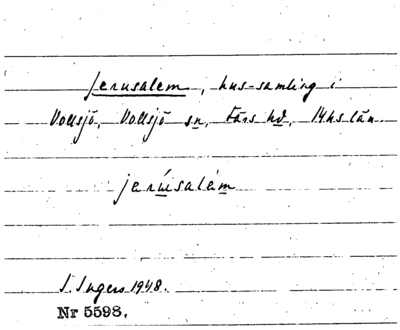 Jerusalem, hus-samling i
Vollsjö, Vollsjö sn, Färs hd, Mhs län.
jerúsalém
I. Ingers 1948.
Nr 5598.